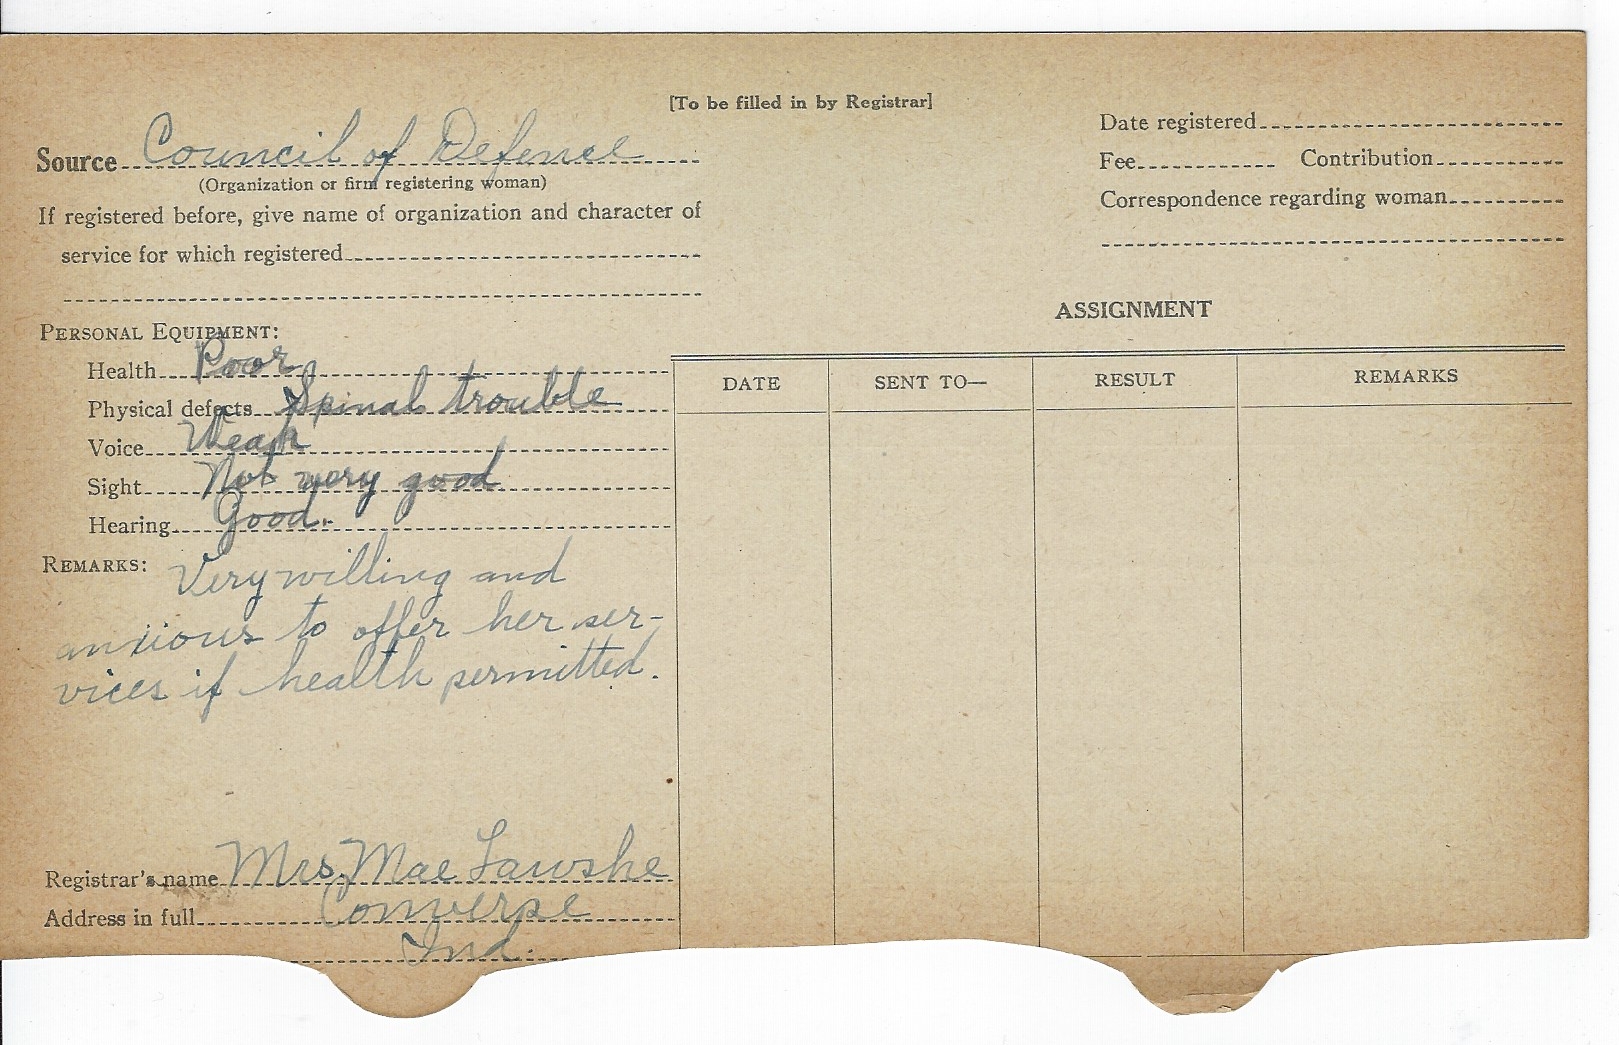 [To be filled in by Registrar]
Source Council of Defence
(Organization or firm registering woman)
If registered before, give name of organization and character of
service for which registered
Date registered
Fee Contribution
Correspondence regarding woman
PERSONAL EQUIPMENT:
Health Poor
Physical defects Spinal trouble
Voice Weak
Sight Not very good
Hearing Good.
REMARKS: Very willing and
anxious to offer her ser-
vices if health permitted.
Registrar's name Mrs. Mae Lawshe
Address in full Converse
Ind.
ASSIGNMENT
DATE SENT TO— RESULT REMARKS